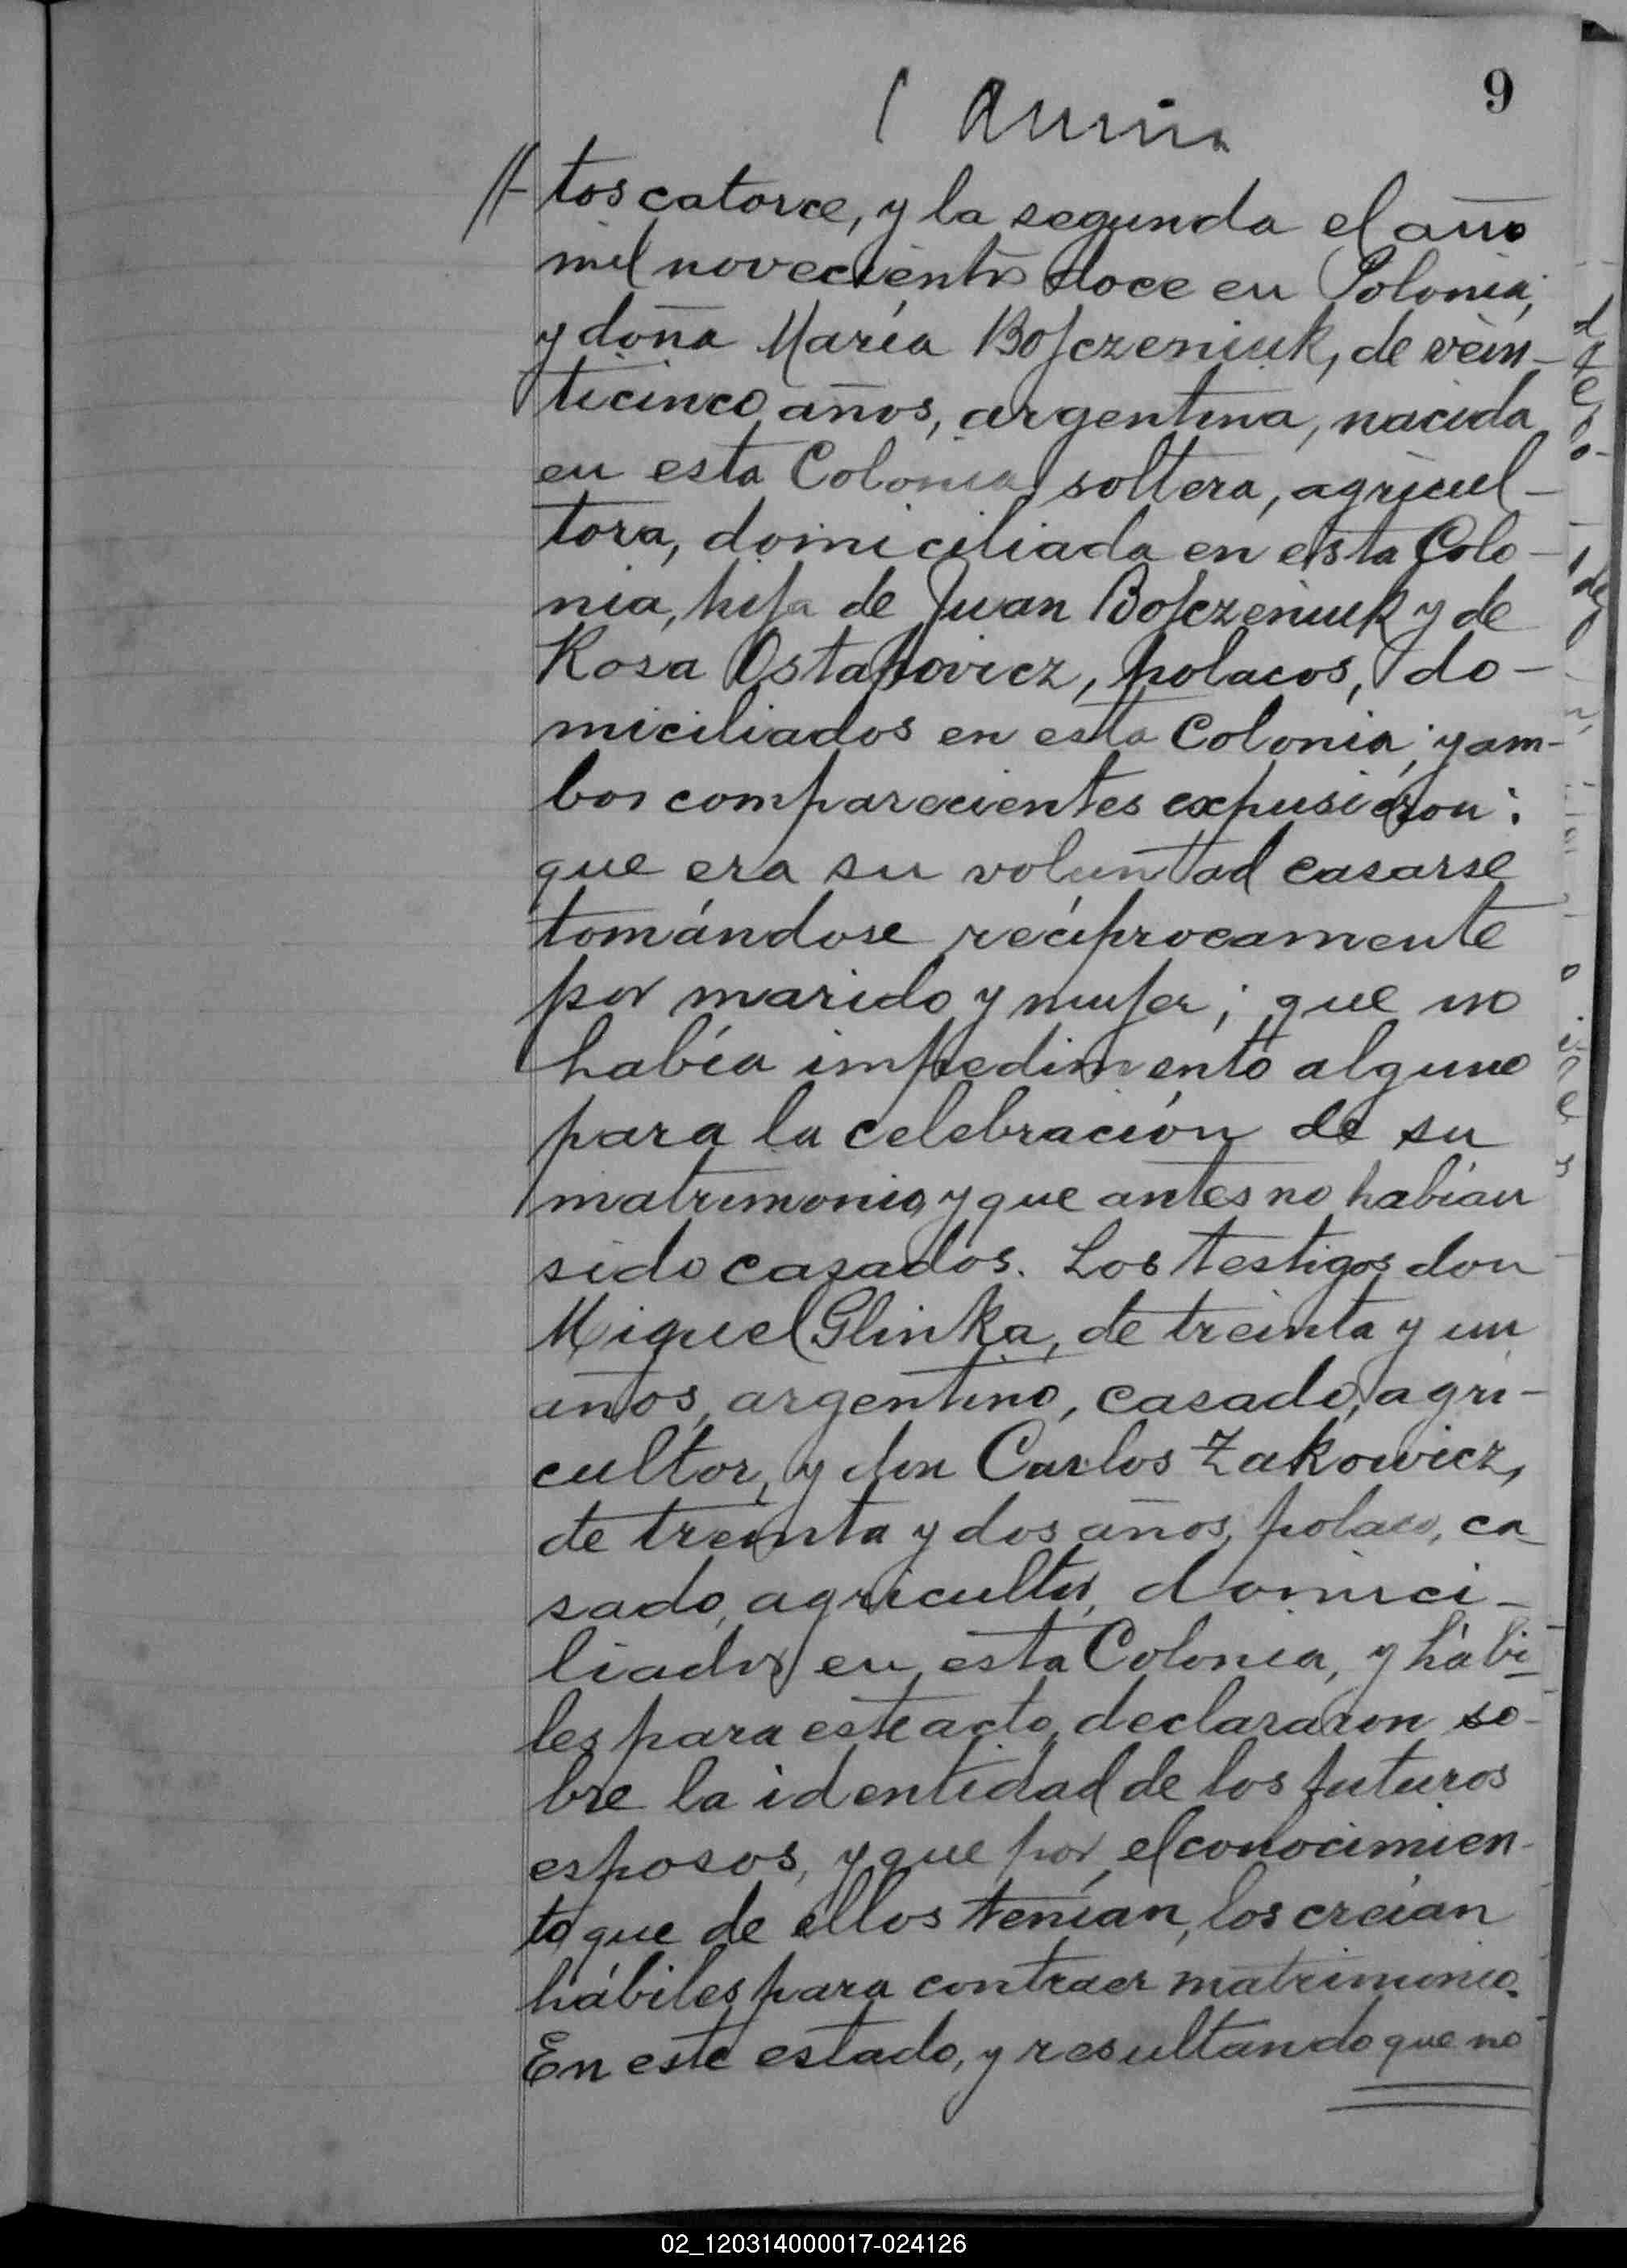 9
// tos catorce, y la segunda el año
mil novecientos doce en Polonia;
y doña María Bojczeniuk, de vein-
ticinco años, argentina, nacida
en esta Colonia, soltera, agricul-
tora, domiciliada en esta Colo-
nia, hija de Juan Bojczeniuk y de
Rosa Ostapovicz, polacos, do-
miciliados en esta Colonia; y am-
bos comparecientes expusieron:
que era su voluntad casarse
tomándose recíprocamente
por marido y mujer; que no
había impedimento alguno
para la celebración de su
matrimonio, y que antes no habían
sido casados. Los testigos don
Miguel Glinka, de treinta y un
años, argentino, casado, agri-
cultor, y don Carlos Zakowicz,
de treinta y dos años, polaco, ca-
sado, agricultor, domici-
liados en esta Colonia, y hábi-
les para este acto, declararon so-
bre la identidad de los futuros
esposos, y que por el conocimien-
to que de ellos tenían, los creían
hábiles para contraer matrimonio.
En este estado, y resultando que no
02_120314000017-024126